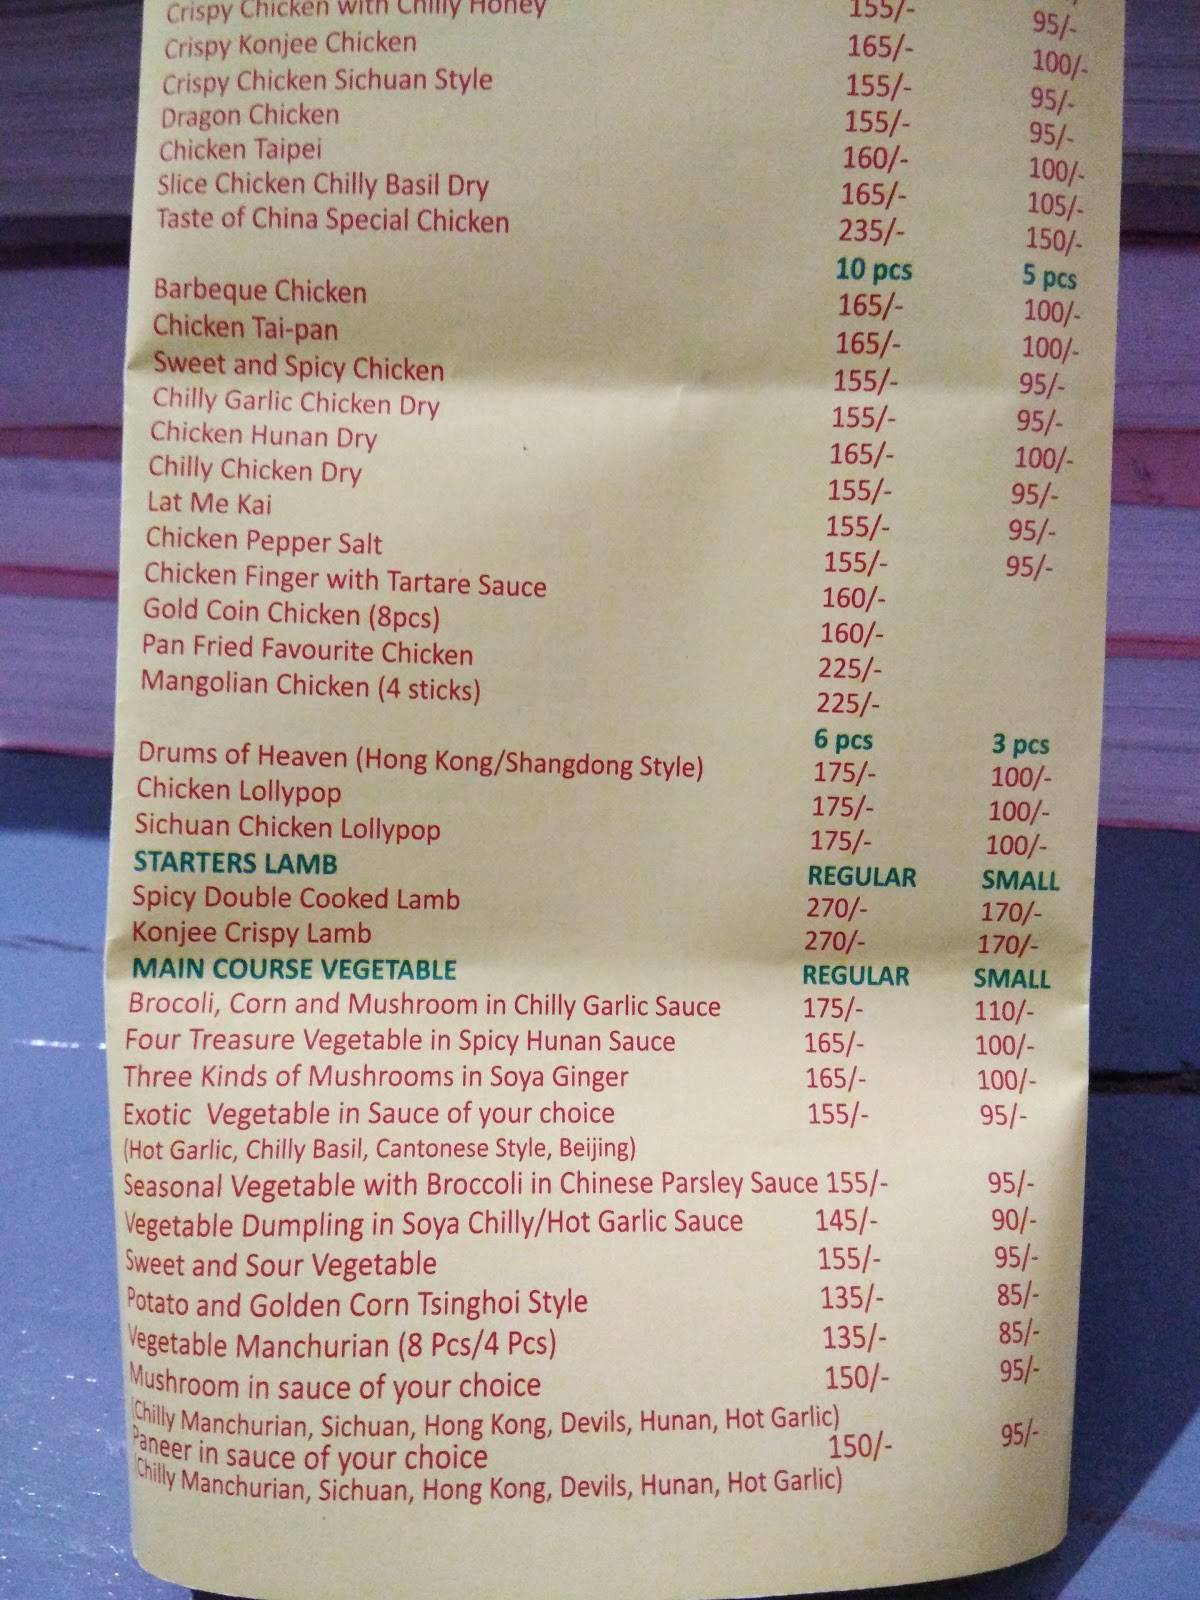 Crispy Chicken with Chilly Honey 155/- 95/-
Crispy Konjee Chicken 165/- 100/-
Crispy Chicken Sichuan Style 155/- 95/-
Dragon Chicken 155/- 95/-
Chicken Taipei 160/- 100/-
Slice Chicken Chilly Basil Dry 165/- 105/-
Taste of China Special Chicken 235/- 150/-
10 pcs 5 pcs
Barbeque Chicken 165/- 100/-
Chicken Tai-pan 165/- 100/-
Sweet and Spicy Chicken 155/- 95/-
Chilly Garlic Chicken Dry 155/- 95/-
Chicken Hunan Dry 165/- 100/-
Chilly Chicken Dry 155/- 95/-
Lat Me Kai 155/- 95/-
Chicken Pepper Salt 155/- 95/-
Chicken Finger with Tartare Sauce 160/-
Gold Coin Chicken (8pcs) 160/-
Pan Fried Favourite Chicken 225/-
Mangolian Chicken (4 sticks) 225/-
6 pcs 3 pcs
Drums of Heaven (Hong Kong/Shangdong Style) 175/- 100/-
Chicken Lollypop 175/- 100/-
Sichuan Chicken Lollypop 175/- 100/-
STARTERS LAMB REGULAR SMALL
Spicy Double Cooked Lamb 270/- 170/-
Konjee Crispy Lamb 270/- 170/-
MAIN COURSE VEGETABLE REGULAR SMALL
Brocoli, Corn and Mushroom in Chilly Garlic Sauce 175/- 110/-
Four Treasure Vegetable in Spicy Hunan Sauce 165/- 100/-
Three Kinds of Mushrooms in Soya Ginger 165/- 100/-
Exotic Vegetable in Sauce of your choice 155/- 95/-
(Hot Garlic, Chilly Basil, Cantonese Style, Beijing)
Seasonal Vegetable with Broccoli in Chinese Parsley Sauce 155/- 95/-
Vegetable Dumpling in Soya Chilly/Hot Garlic Sauce 145/- 90/-
Sweet and Sour Vegetable 155/- 95/-
Potato and Golden Corn Tsinghoi Style 135/- 85/-
Vegetable Manchurian (8 Pcs/4 Pcs) 135/- 85/-
Mushroom in sauce of your choice 150/- 95/-
(Chilly Manchurian, Sichuan, Hong Kong, Devils, Hunan, Hot Garlic)
Paneer in sauce of your choice 150/- 95/-
(Chilly Manchurian, Sichuan, Hong Kong, Devils, Hunan, Hot Garlic)